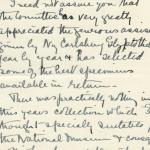 I need not assure you that
the Committee was very greatly
appreciated the generous assis
given by Ny Carlsberg Glyptothek
year by year & has selected
some of the best specimens
available in return.
There was practically nothing in
this years collection which I
thought specially suitable
the National Museum &